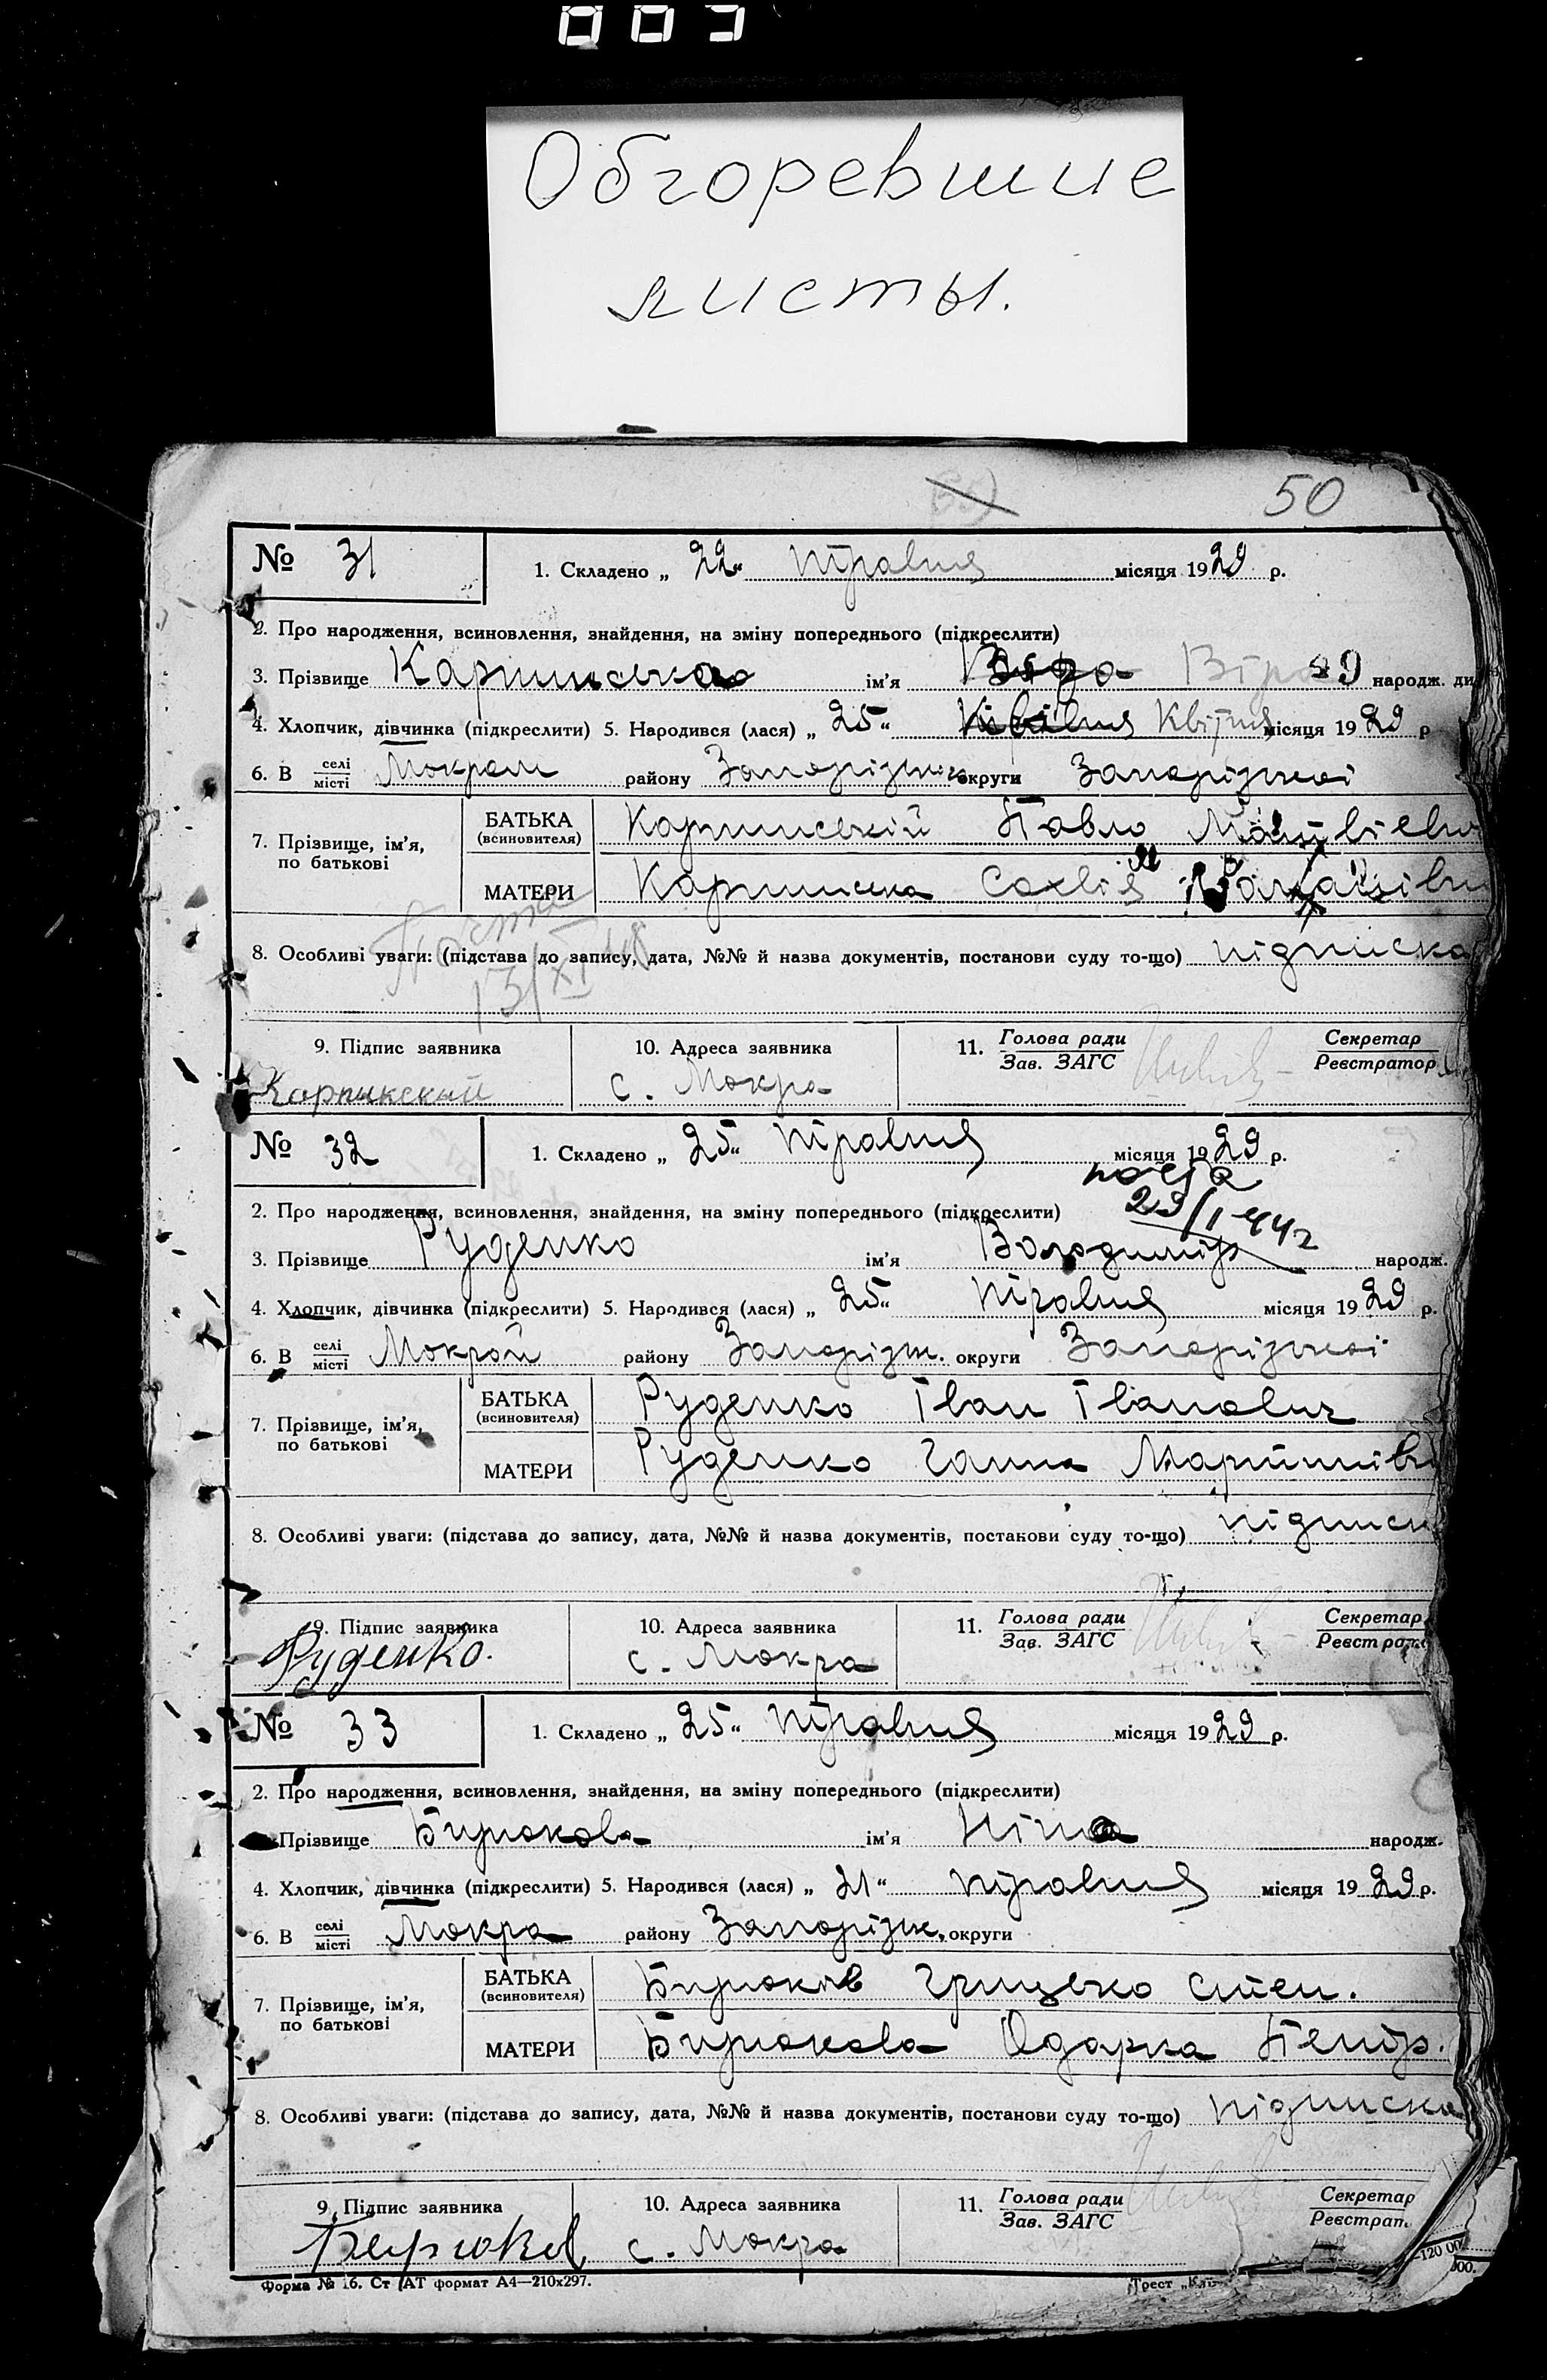 003
Обгоревшие
листы.
50
№ 31 1. Складено „ 22 “ травня місяця 1929 р.
2. Про народження, всиновлення, знайдення, на зміну попереднього (підкреслити)
3. Прізвище Карпинська ім’я Віра народж. ди
4. Хлопчик, дівчинка (підкреслити) 5. Народився (лася) „ 25 “ Квітня місяця 1929 р
6. В селі/місті Мокром району Запорізьк округи Запорізької
7. Прізвище, ім’я, по батькові
БАТЬКА (всиновителя) Карпинський Павло
МАТЕРИ Карпинська
8. Особливі уваги: (підстава до запису, дата, №№ й назва документів, постанови суду то-що) підписка
13/XI
9. Підпис заявника 10. Адреса заявника 11. Голова ради/Зав. ЗАГС Секретар/Реєстратор
Карпинский с. Мокра
№ 32 1. Складено „ 25 “ травня місяця 1929 р.
29/I-44г
2. Про народження, всиновлення, знайдення, на зміну попереднього (підкреслити)
3. Прізвище Руденко ім’я Володимір народж.
4. Хлопчик, дівчинка (підкреслити) 5. Народився (лася) „ 25 “ травня місяця 1929 р.
6. В селі/місті Мокрой району Запорізьк. округи Запорізької
7. Прізвище, ім’я, по батькові
БАТЬКА (всиновителя) Руденко Іван Іванович
МАТЕРИ Руденко Ганна Мартинівн
8. Особливі уваги: (підстава до запису, дата, №№ й назва документів, постанови суду то-що) підписк
9. Підпис заявника 10. Адреса заявника 11. Голова ради/Зав. ЗАГС Секретар/Реєстрат
Руденко. с. Мокра
№ 33 1. Складено „ 25 “ травня місяця 1929 р.
2. Про народження, всиновлення, знайдення, на зміну попереднього (підкреслити)
Прізвище Бирюкова ім’я Ніна народж.
4. Хлопчик, дівчинка (підкреслити) 5. Народився (лася) „ 21 “ травня місяця 1929 р.
6. В селі/місті Мокра району Запорізьк. округи
7. Прізвище, ім’я, по батькові
БАТЬКА (всиновителя) Бирюков Грицько Степ.
МАТЕРИ Бирюкова Одарка Петр.
8. Особливі уваги: (підстава до запису, дата, №№ й назва документів, постанови суду то-що) підписка
9. Підпис заявника 10. Адреса заявника 11. Голова ради/Зав. ЗАГС Секретар/Реєстрат
с. Мокра
Форма № 16. Ст АТ формат А4—210х297. Трест